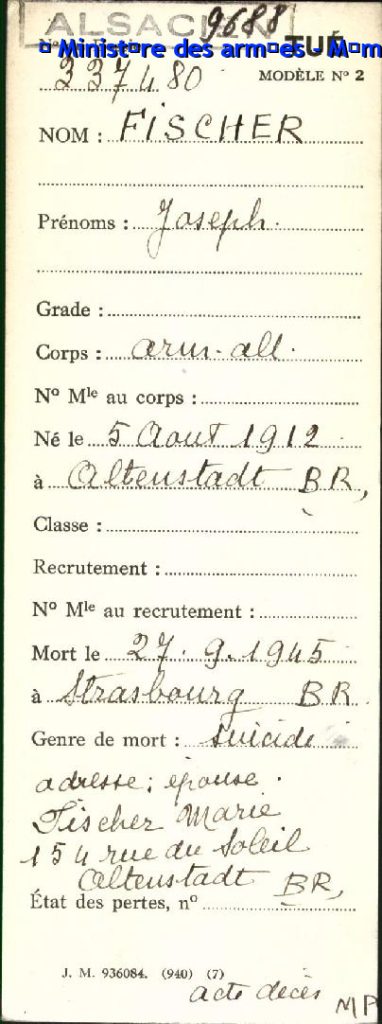 ALSACIEN
9688
TUÉ
© Ministère des armées - Mém
N° 337480
MODÈLE N° 2
NOM : FISCHER
Prénoms : Joseph.
Grade :
Corps : arm. all.
N° Mle au corps :
Né le 5 Aout 1912
à Altenstadt BR,
Classe :
Recrutement :
N° Mle au recrutement :
Mort le 27. 9. 1945
à Strasbourg BR
Genre de mort : suicide
adresse : épouse.
Fischer Marie
154 rue du Soleil
Altenstadt BR,
État des pertes, n°
J. M. 936084. (940) (7)
acte decès
MP